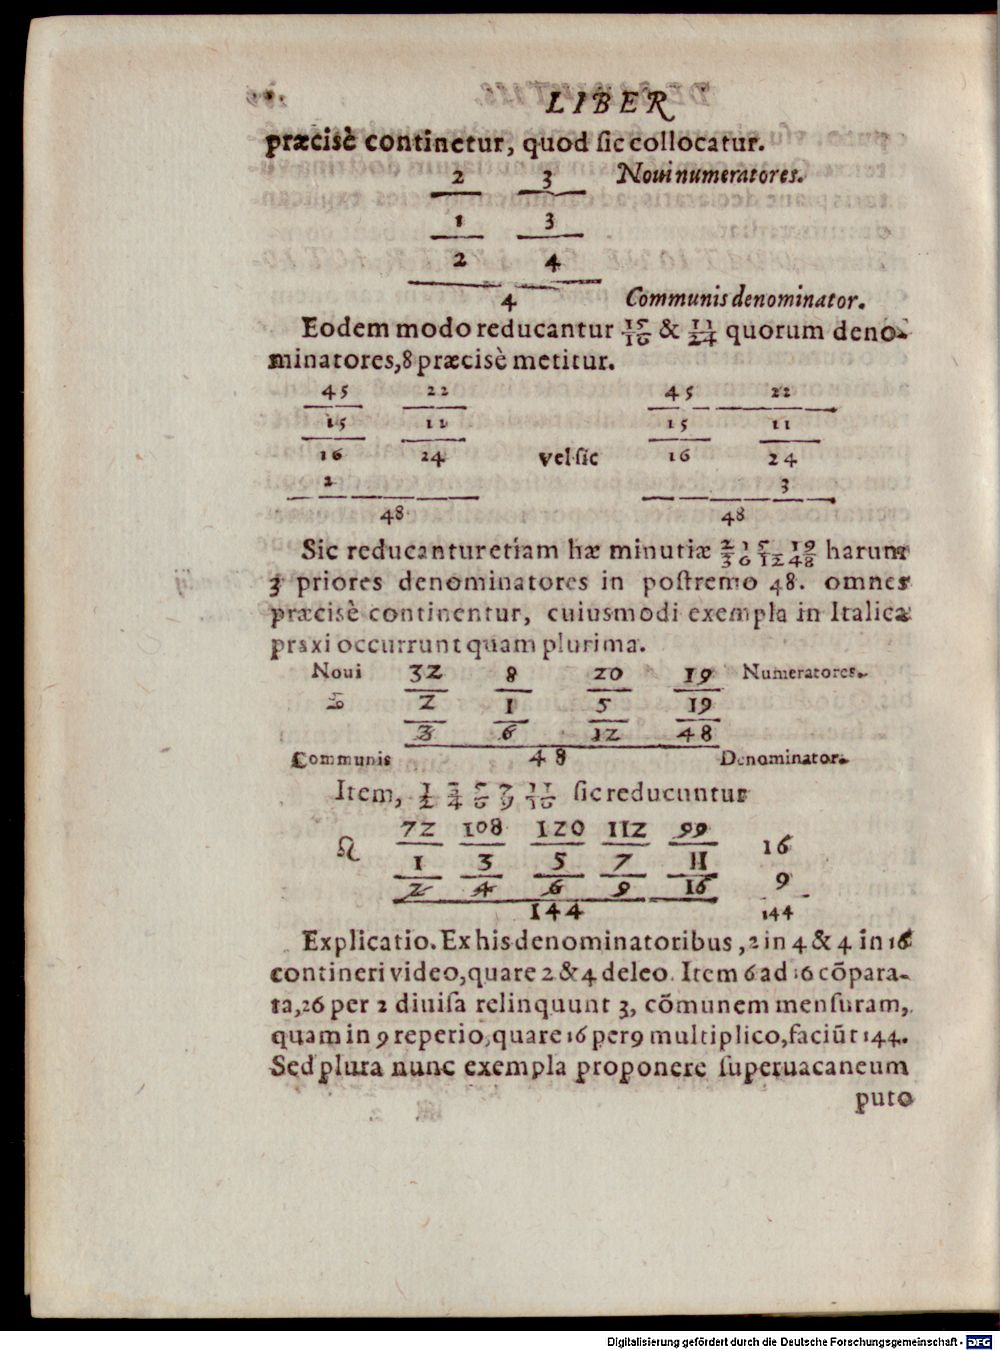 LIBER
præcisè continetur, quod sic collocatur.
2 3 Noui numeratores.
1 3
2 4
4 Communis denominator.
Eodem modo reducantur 15/16 & 11/24 quorum deno-
minatores, 8 præcisè metitur.
45 22 45 22
15 11 15 11
16 24 vel sic 16 24
2 3
48 48
Sic reducantur etiam hæ minutiæ 2/3 1/6 5/12 19/48 harum
3 priores denominatores in postremo 48. omnes
præcisè continentur, cuiusmodi exempla in Italica
praxi occurrunt quam plurima.
Noui 32 8 20 19 Numeratores.
2 1 5 19
3 6 12 48
Communis 48 Denominator.
Item, 1/2 3/4 5/6 7/9 11/16 sic reducuntur
72 108 120 112 99
16
1 3 5 7 11
2 4 6 9 16 9
144 144
Explicatio. Ex his denominatoribus, 2 in 4 & 4 in 16
contineri video, quare 2 & 4 deleo. Item 6 ad 16 cõpara-
ta, 26 per 2 diuisa relinquunt 3, cõmunem mensuram,
quam in 9 reperio, quare 16 per 9 multiplico, faciũt 144.
Sed plura nunc exempla proponere superuacaneum
puto
Digitalisierung gefördert durch die Deutsche Forschungsgemeinschaft - DFG